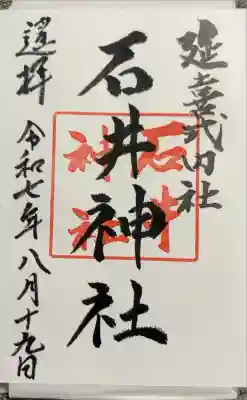 延喜式内社
石井神社
石井
神社
遥拝
令和七年八月十九日